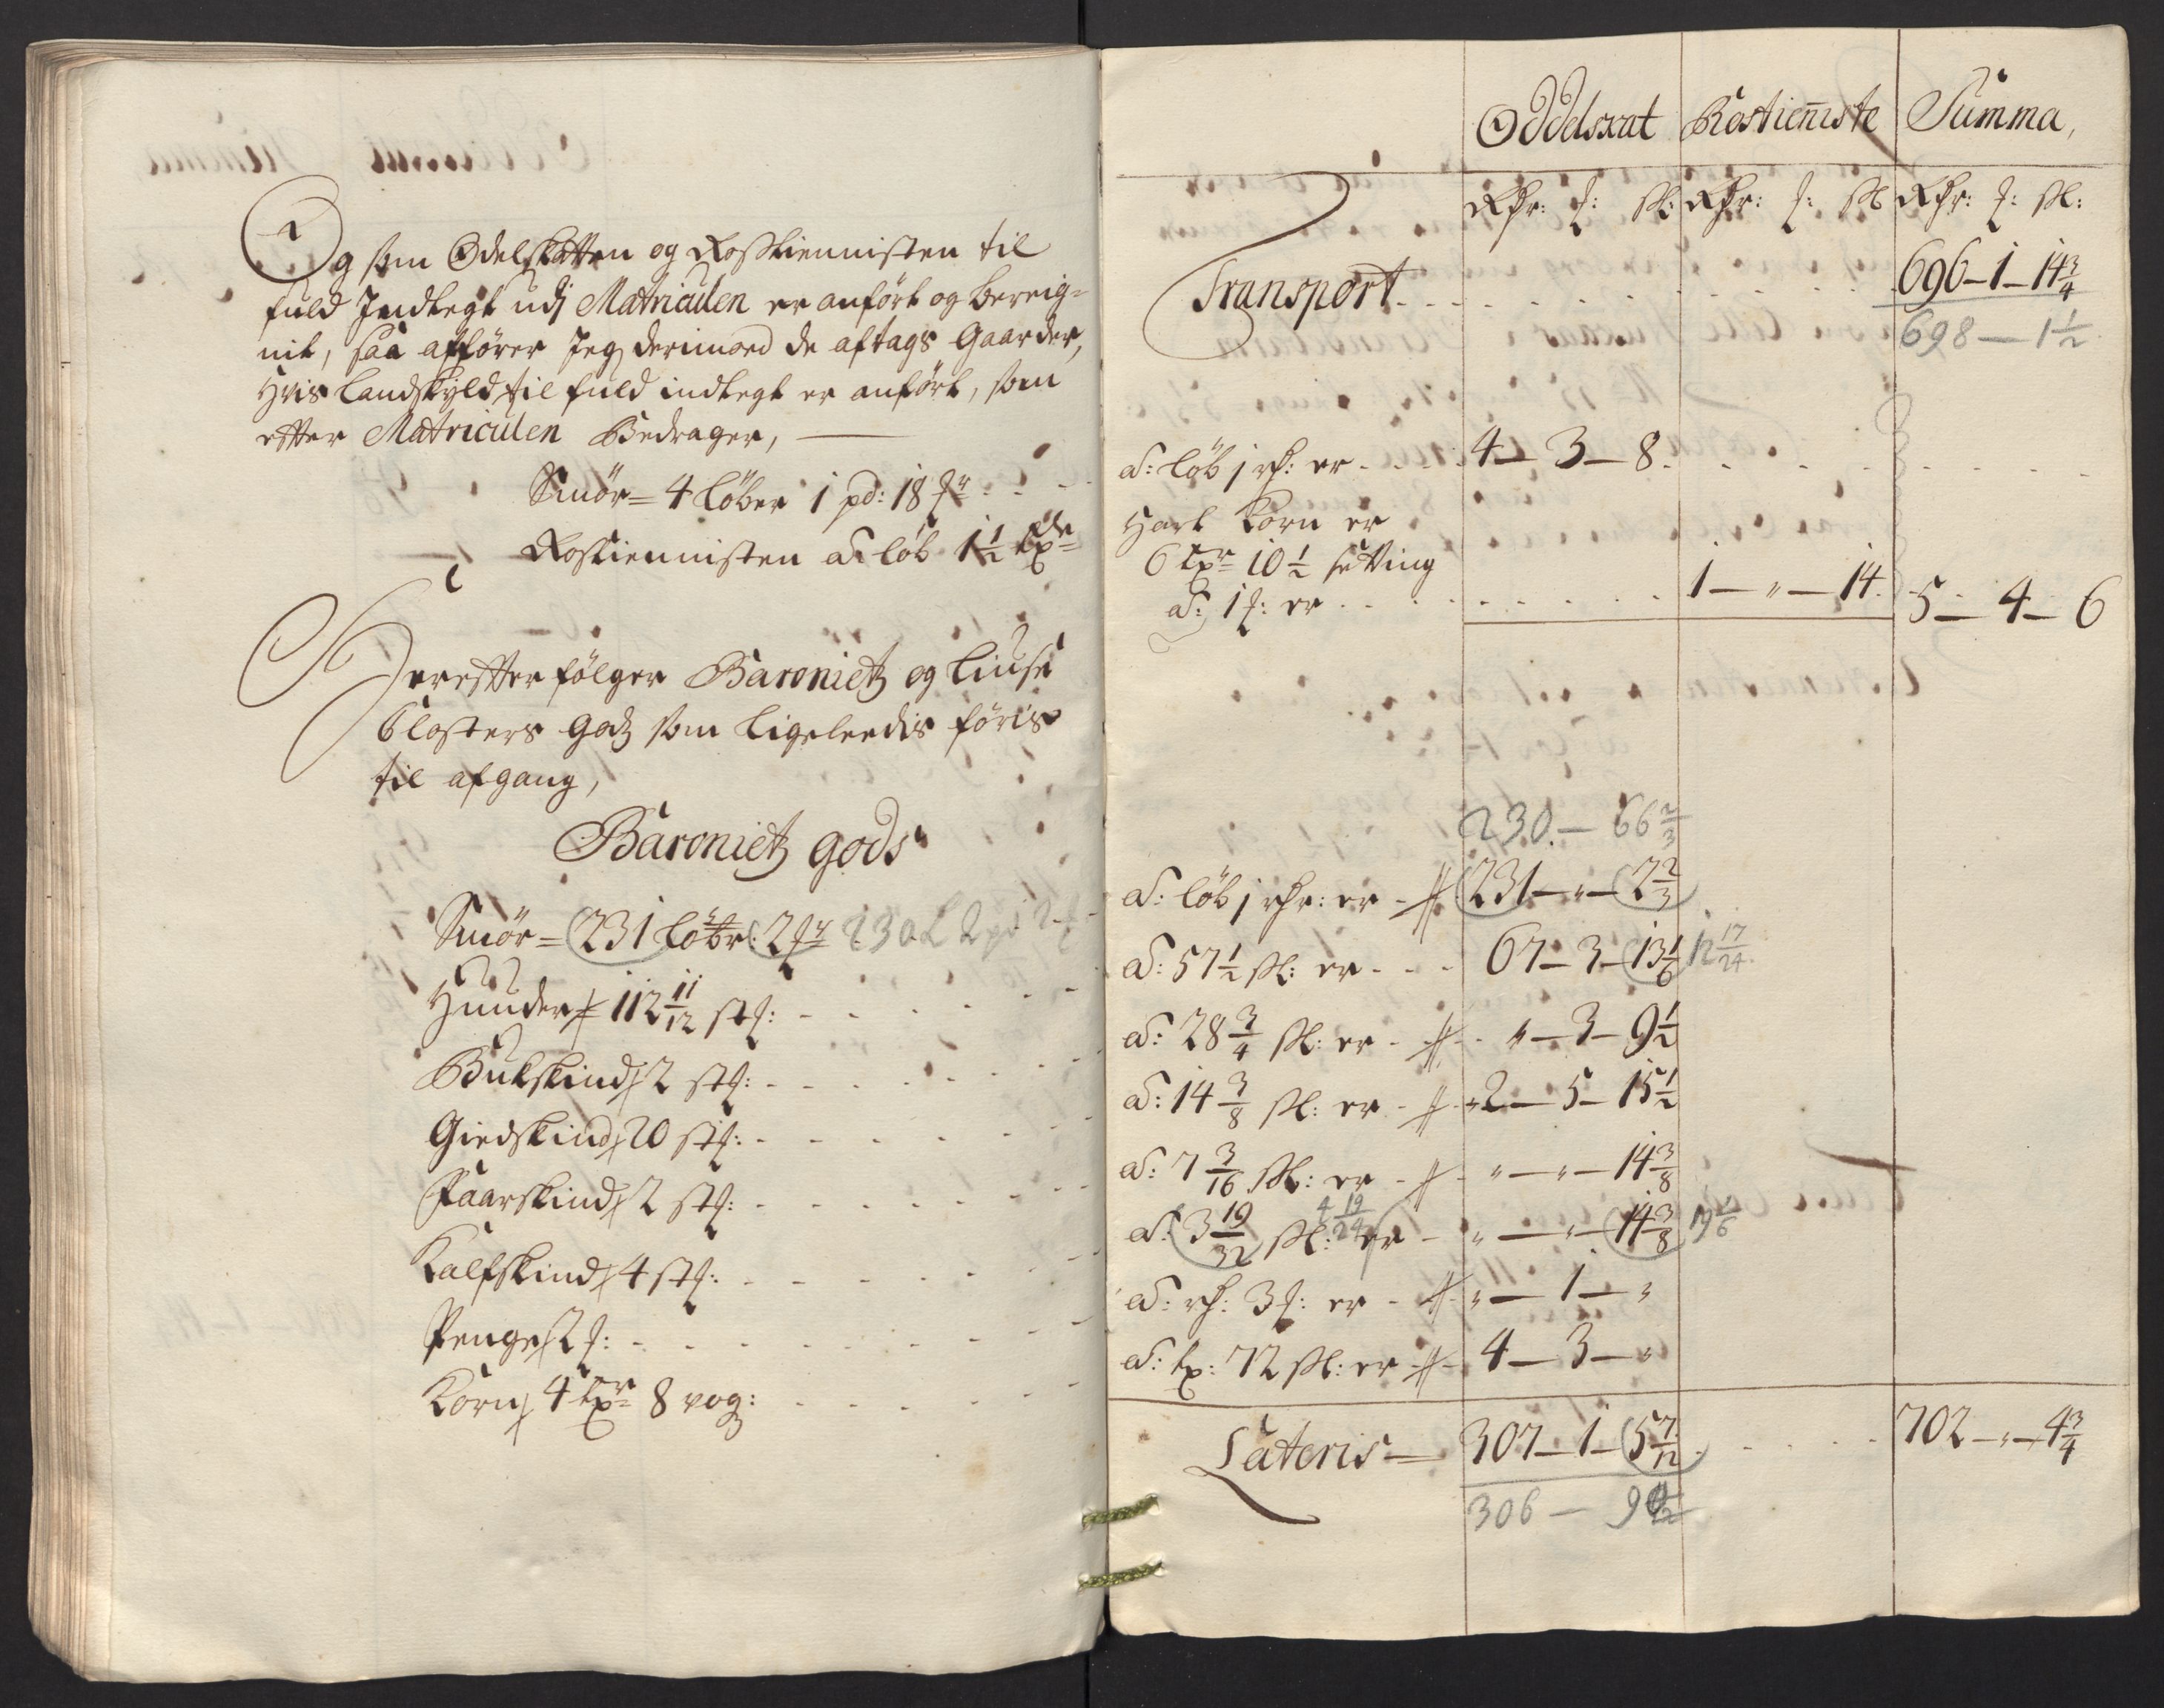 Og som Odelskatten og Rostiennisten til
fuld Indtegt udj Matriculen er anført og bereig-
nit, saa affører Jeg derimoed de aftags Gaarder,
Hvis Landskyld til fuld indtegt er anført, som
efter Matriculen Bedrager,
Smör= 4 Löber 1 pd: 18
Rostiennisten a: löb 1½
Derefter følger Baroniet og Liuse
Closters Godtz som ligeleedis føris
til afgang,
Baroniet gods
Smör= 231 löbr: 2 230 L 2 pd
Huuder 112 11/12 stk:
Bukskind 2 stk:
Giedskind 20 stk:
Faarskind 2 stk:
Kalfskind 4 stk:
Penge 2
Korn 4 8 vog:
Oddelsxat Rostienniste Summa,
Rdr: ß: Rdr: ß Rdr: ß:
Transport 696—1—14¾
698—1½
a: löb 1 rd: er 4—3—8
Hart Korn er
6 10½ setting
a: 1 er 1—„—14. 5—4—6
230.—66⅔
a: löb 1 rdr: er 231—„—2⅔
a: 57½ ß: er 67—3—13⅙ 12 17/24
a: 28¾ ß: er „—3—9½
a: 14⅜ ß: er 2—5—15½
a: 7 3/16 ß: er „—„—14⅜
a: 3 19/32 ß: 4 19/24 er „—„—14⅜ 19⅙
a: rd: 3 er „—1—„
a: 72 ß: er 4—3—„
Lateris 307—1—5 7/12 702—„—4¾
306—9